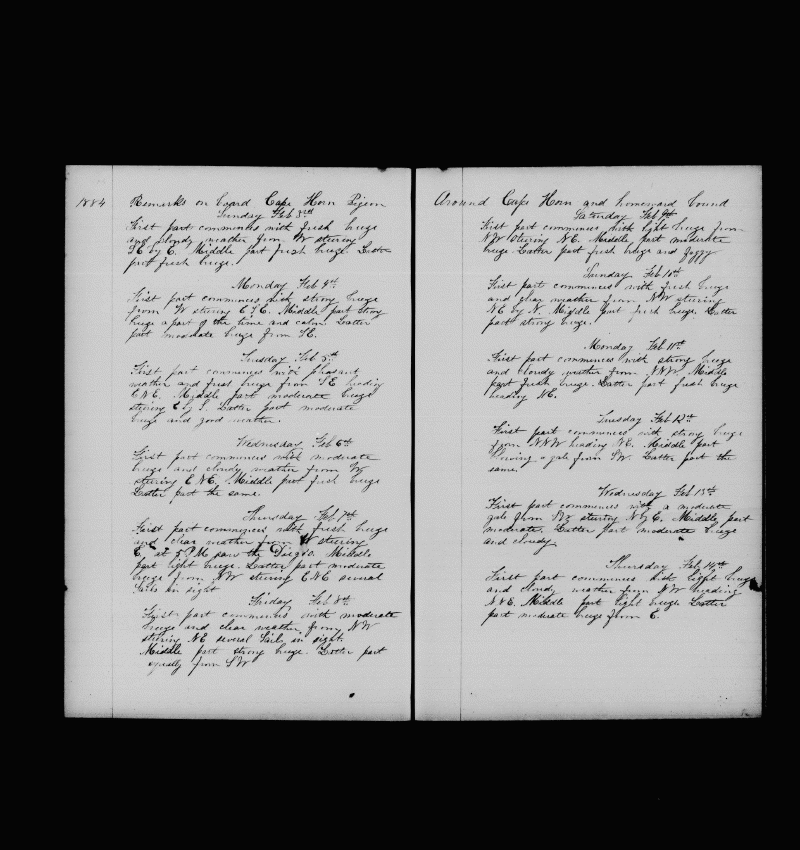 1884 Remarks on board Cape Horn Pigeon
Sunday Feb 3rd
First part commences with fresh breeze
and cloudy weather from W steering
SE by E. Middle part fresh breeze. Latter
part fresh breeze.
Monday Feb 4th
First part commences with strong breeze
from W steering
breeze a part of the time and calm. Latter
part moderate breeze from SE.
Tuesday Feb 5th
First part commences with pleasant
weather and fresh breeze from SE heading
ENE. Middle part moderate breeze
steering E by S. Latter part moderate
breeze and good weather.
Wednesday Feb 6th
First part commences with moderate
breeze and cloudy weather from W
steering ENE. Middle part fresh breeze
Latter part the same.
Thursday Feb 7th
First part commences with fresh breeze
and clear weather from W steering
E. at 5 PM saw the Diego. Middle
part light breeze. Latter part moderate
breeze from NW steering ENE several
Sails in sight
Friday Feb 8th
First part commences with moderate
breeze and clear weather from NW
steering NE several Sails in sight.
Middle part strong breeze. Latter part
squally from SW
Around Cape Horn and homeward bound
Saturday Feb 9th
First part commences with light breeze from
NW steering NE. Middle part moderate
breeze. Latter part fresh breeze and foggy
Sunday Feb 10th
First part commences with fresh breeze
and clear weather from NW steering
NE by N. Middle part fresh breeze. Latter
part strong breeze.
Monday Feb 11th
First part commences with strong breeze
and cloudy weather from NNW. Middle
part fresh breeze. Latter part fresh breeze
heading NE.
Tuesday Feb 12th
First part commences with strong breeze
from NNW heading NE. Middle part
blowing a gale from SW. Latter part the
same.
Wednesday Feb 13th
First part commences with a moderate
gale from steering N by E. Middle part
moderate. Latter part moderate breeze
and cloudy
Thursday Feb 14th
First part commences with light breeze
and cloudy weather from NW heading
NNE. Middle part light breeze. Latter
part moderate breeze from E.